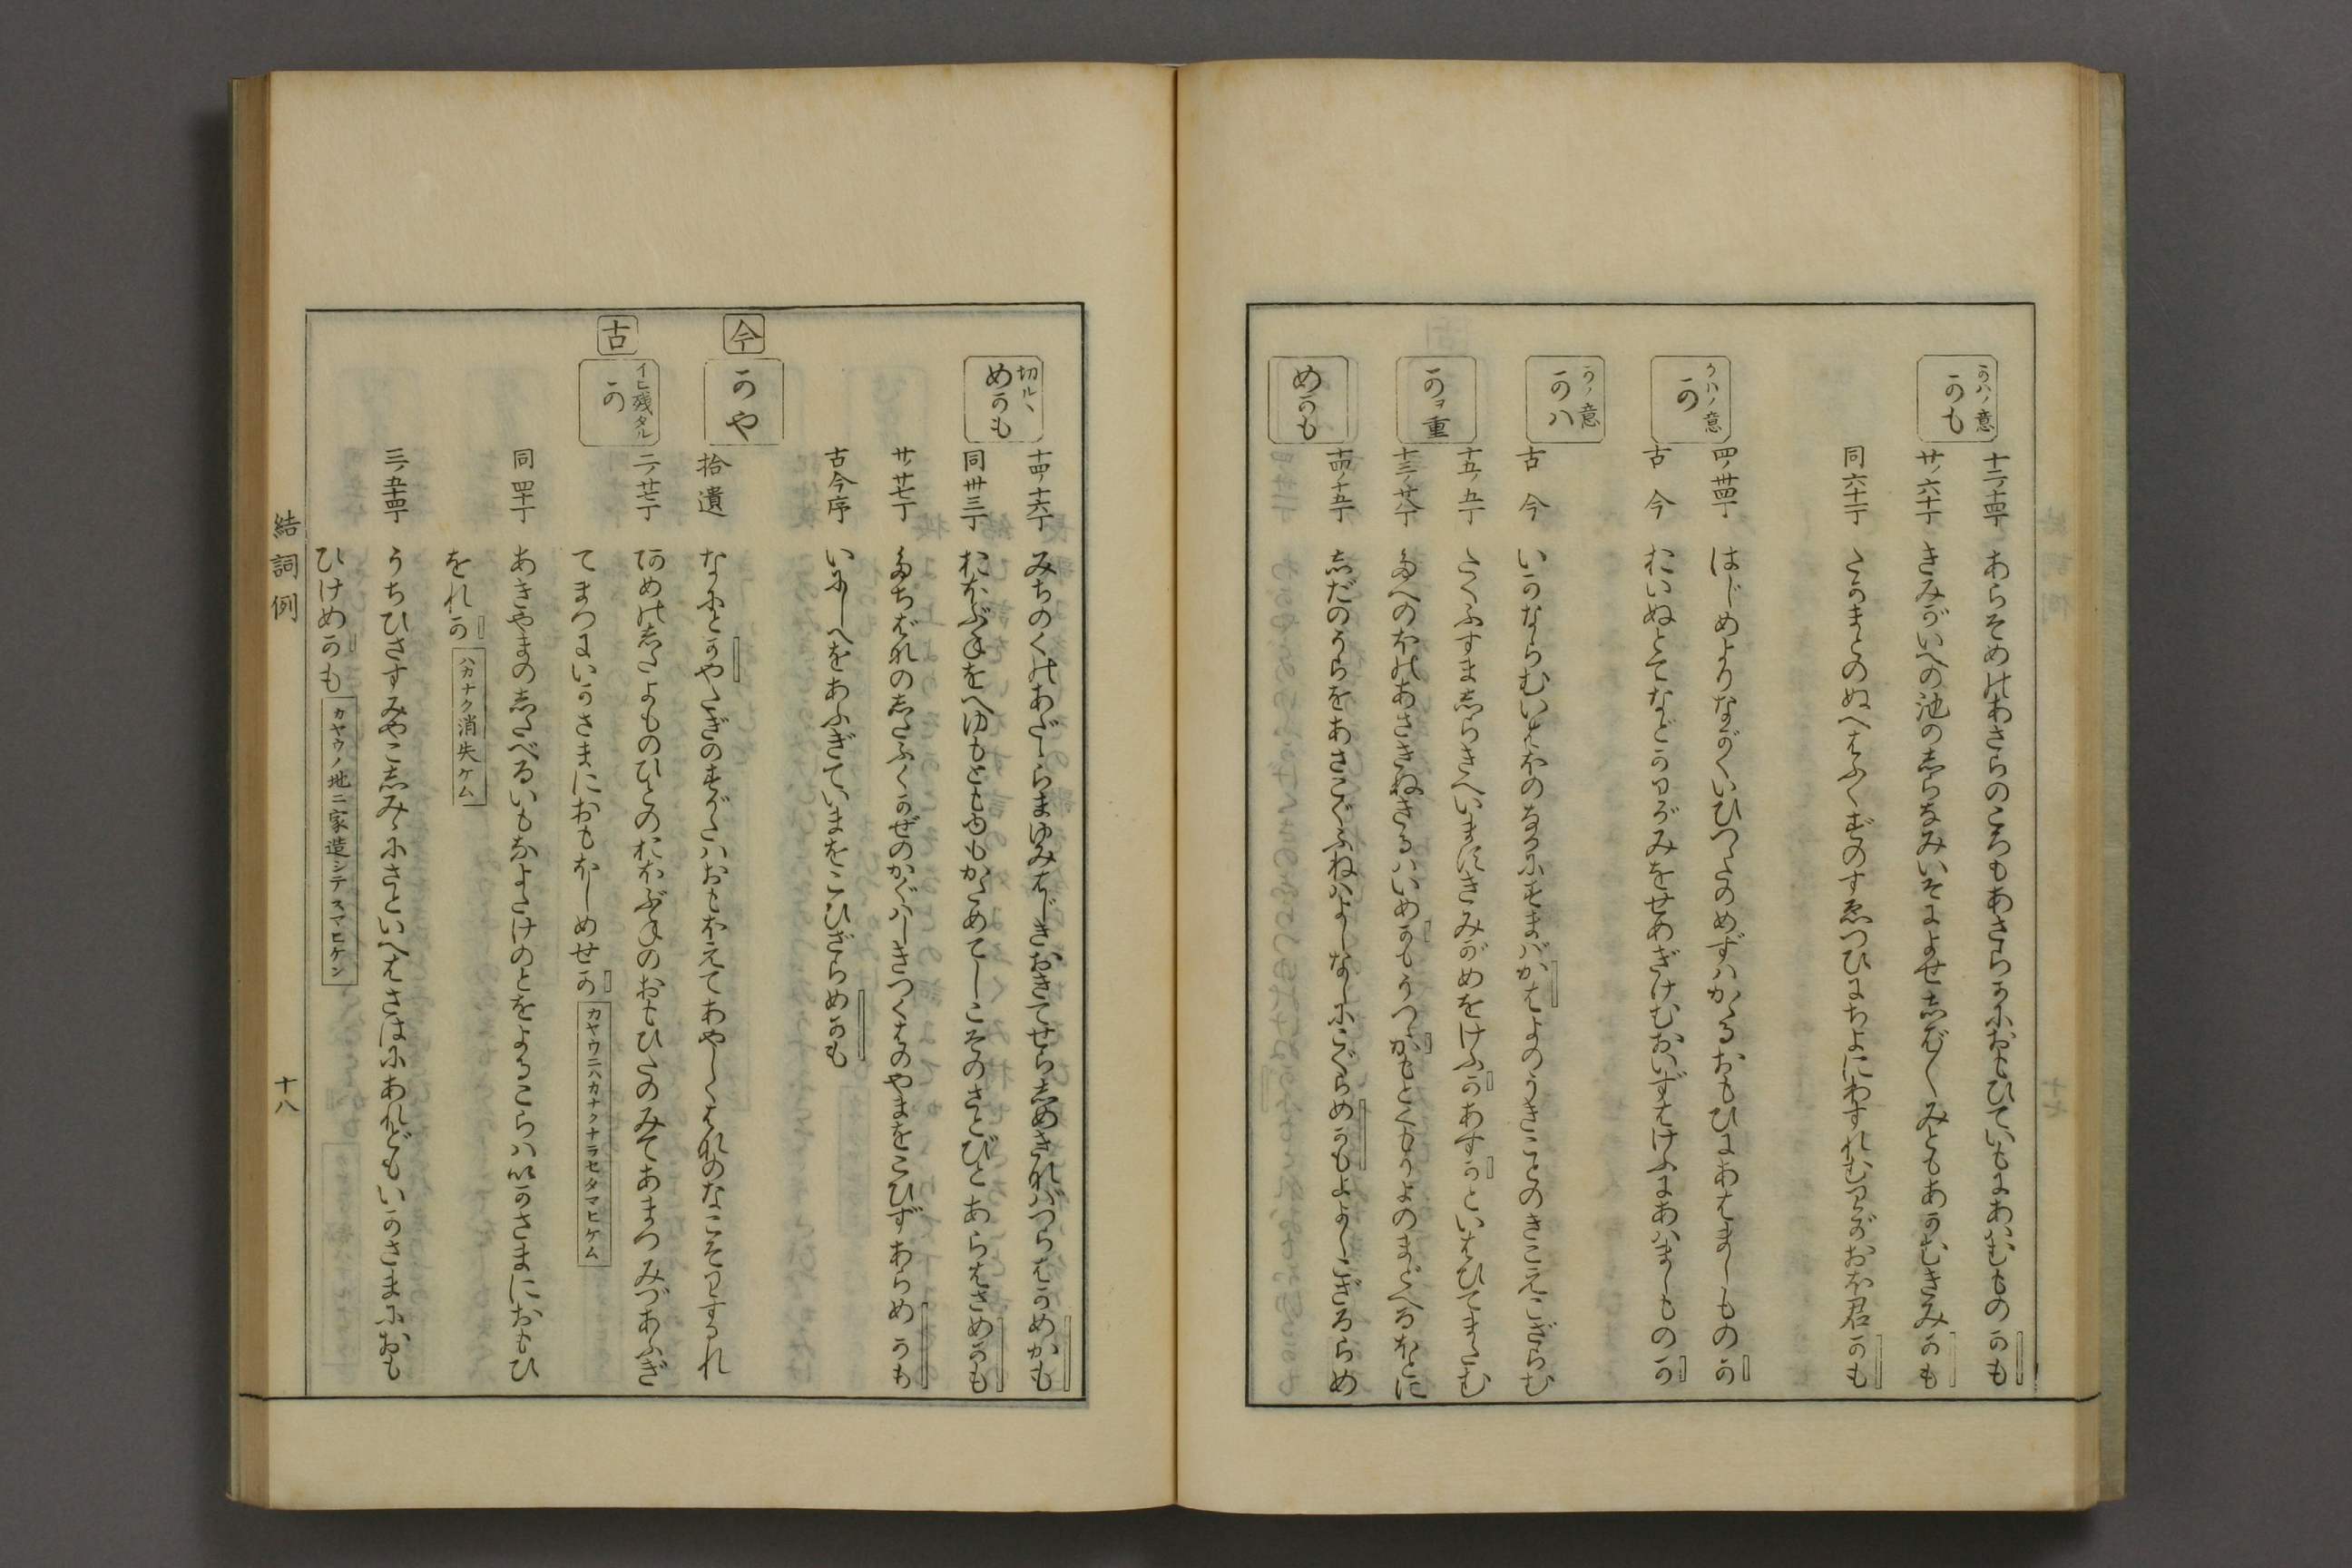 かハノ意 かも
十二ノ十四丁 あらそめのあさらのころもあさらかにおもひていもにあはむものかも
廿ノ六十丁 きみがいへの池のしらなみいそによせしば〳〵みともあかむきみかも
同六十一丁 たかまとのぬへはふくずのすゑつひにちよにわすれむわがおほ君かも
かハノ意 か
四ノ卅四丁 はじめよりながくいひつゝたのめずハかゝるおもひにあはましものか
古今 おいぬとてなどかわがみをせめぎけむおいずはけふにあはましものか
かノ意 かハ
古今 いかならむいはほのなかにすまばかはよのうきことのきこえこざらむ
かヲ重
十五ノ五丁 たくぶすましらきへいますきみがめをけふかあすかといはひてまたむ
十三ノ廿八丁 たへのほのあさぎぬきるハいめかもうつゝかもとくもりよのまどへるほとに
めかも
十四ノ十五丁 しだのうらをあさこぐふねハよしなしにこぐらめかもよよしこざるらめ
十四ノ十六丁 みちのくのあだゝらまゆみはじきおきてせらしめきなばつらはかめかも
切ルヽ めかも
同卅三丁 おほぶねをへゆもともゆもかためてしこそのさとびとあらはさめかも
廿ノ廿七丁 たちばなのしたふくかぜのかぐハしきつくはのやまをこひずあらめかも
古今序 いにしへをあふぎていまをこひざらめかも
今
かや
拾遺 なにとかやくきのすがたハおもほえてあやしくはなのなこそわするれ
古
イヒ残タル か
二ノ廿七丁 あめのしたよものひとのおほぶねのおもひたのみてあまつみづあふぎ
てまつにいかさまにおもほしめせか カヤウニハカナクナラセタマヒケム
同四十丁 あきやまのしたべるいもなよたけのとをよるこらハいかさまにおもひ
をれか ハカナク消失ケム
三ノ五十四丁 うちひさすみやこしみゝにさといへはさはにあれどもいかさまにおも
ひけめかも カヤウノ地ニ家造シテスマヒケン
結詞例
十八